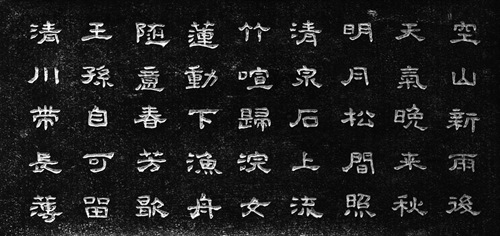 空山新雨後
天氣晚来秋
明月松間照
清泉石上流
竹喧歸浣女
蓮動下漁舟
随意春芳歇
王孫自可留
清川带長薄